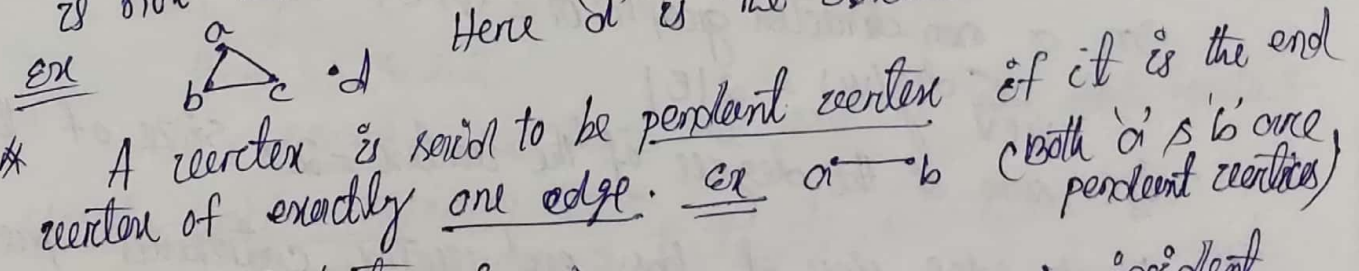 is
Here 'd' is the
Ex a b c .d
* A vertex is said to be pendant vertex if it is the end
vertex of exactly one edge. Ex a b (Both 'a' & 'b' are
pendent vertices)